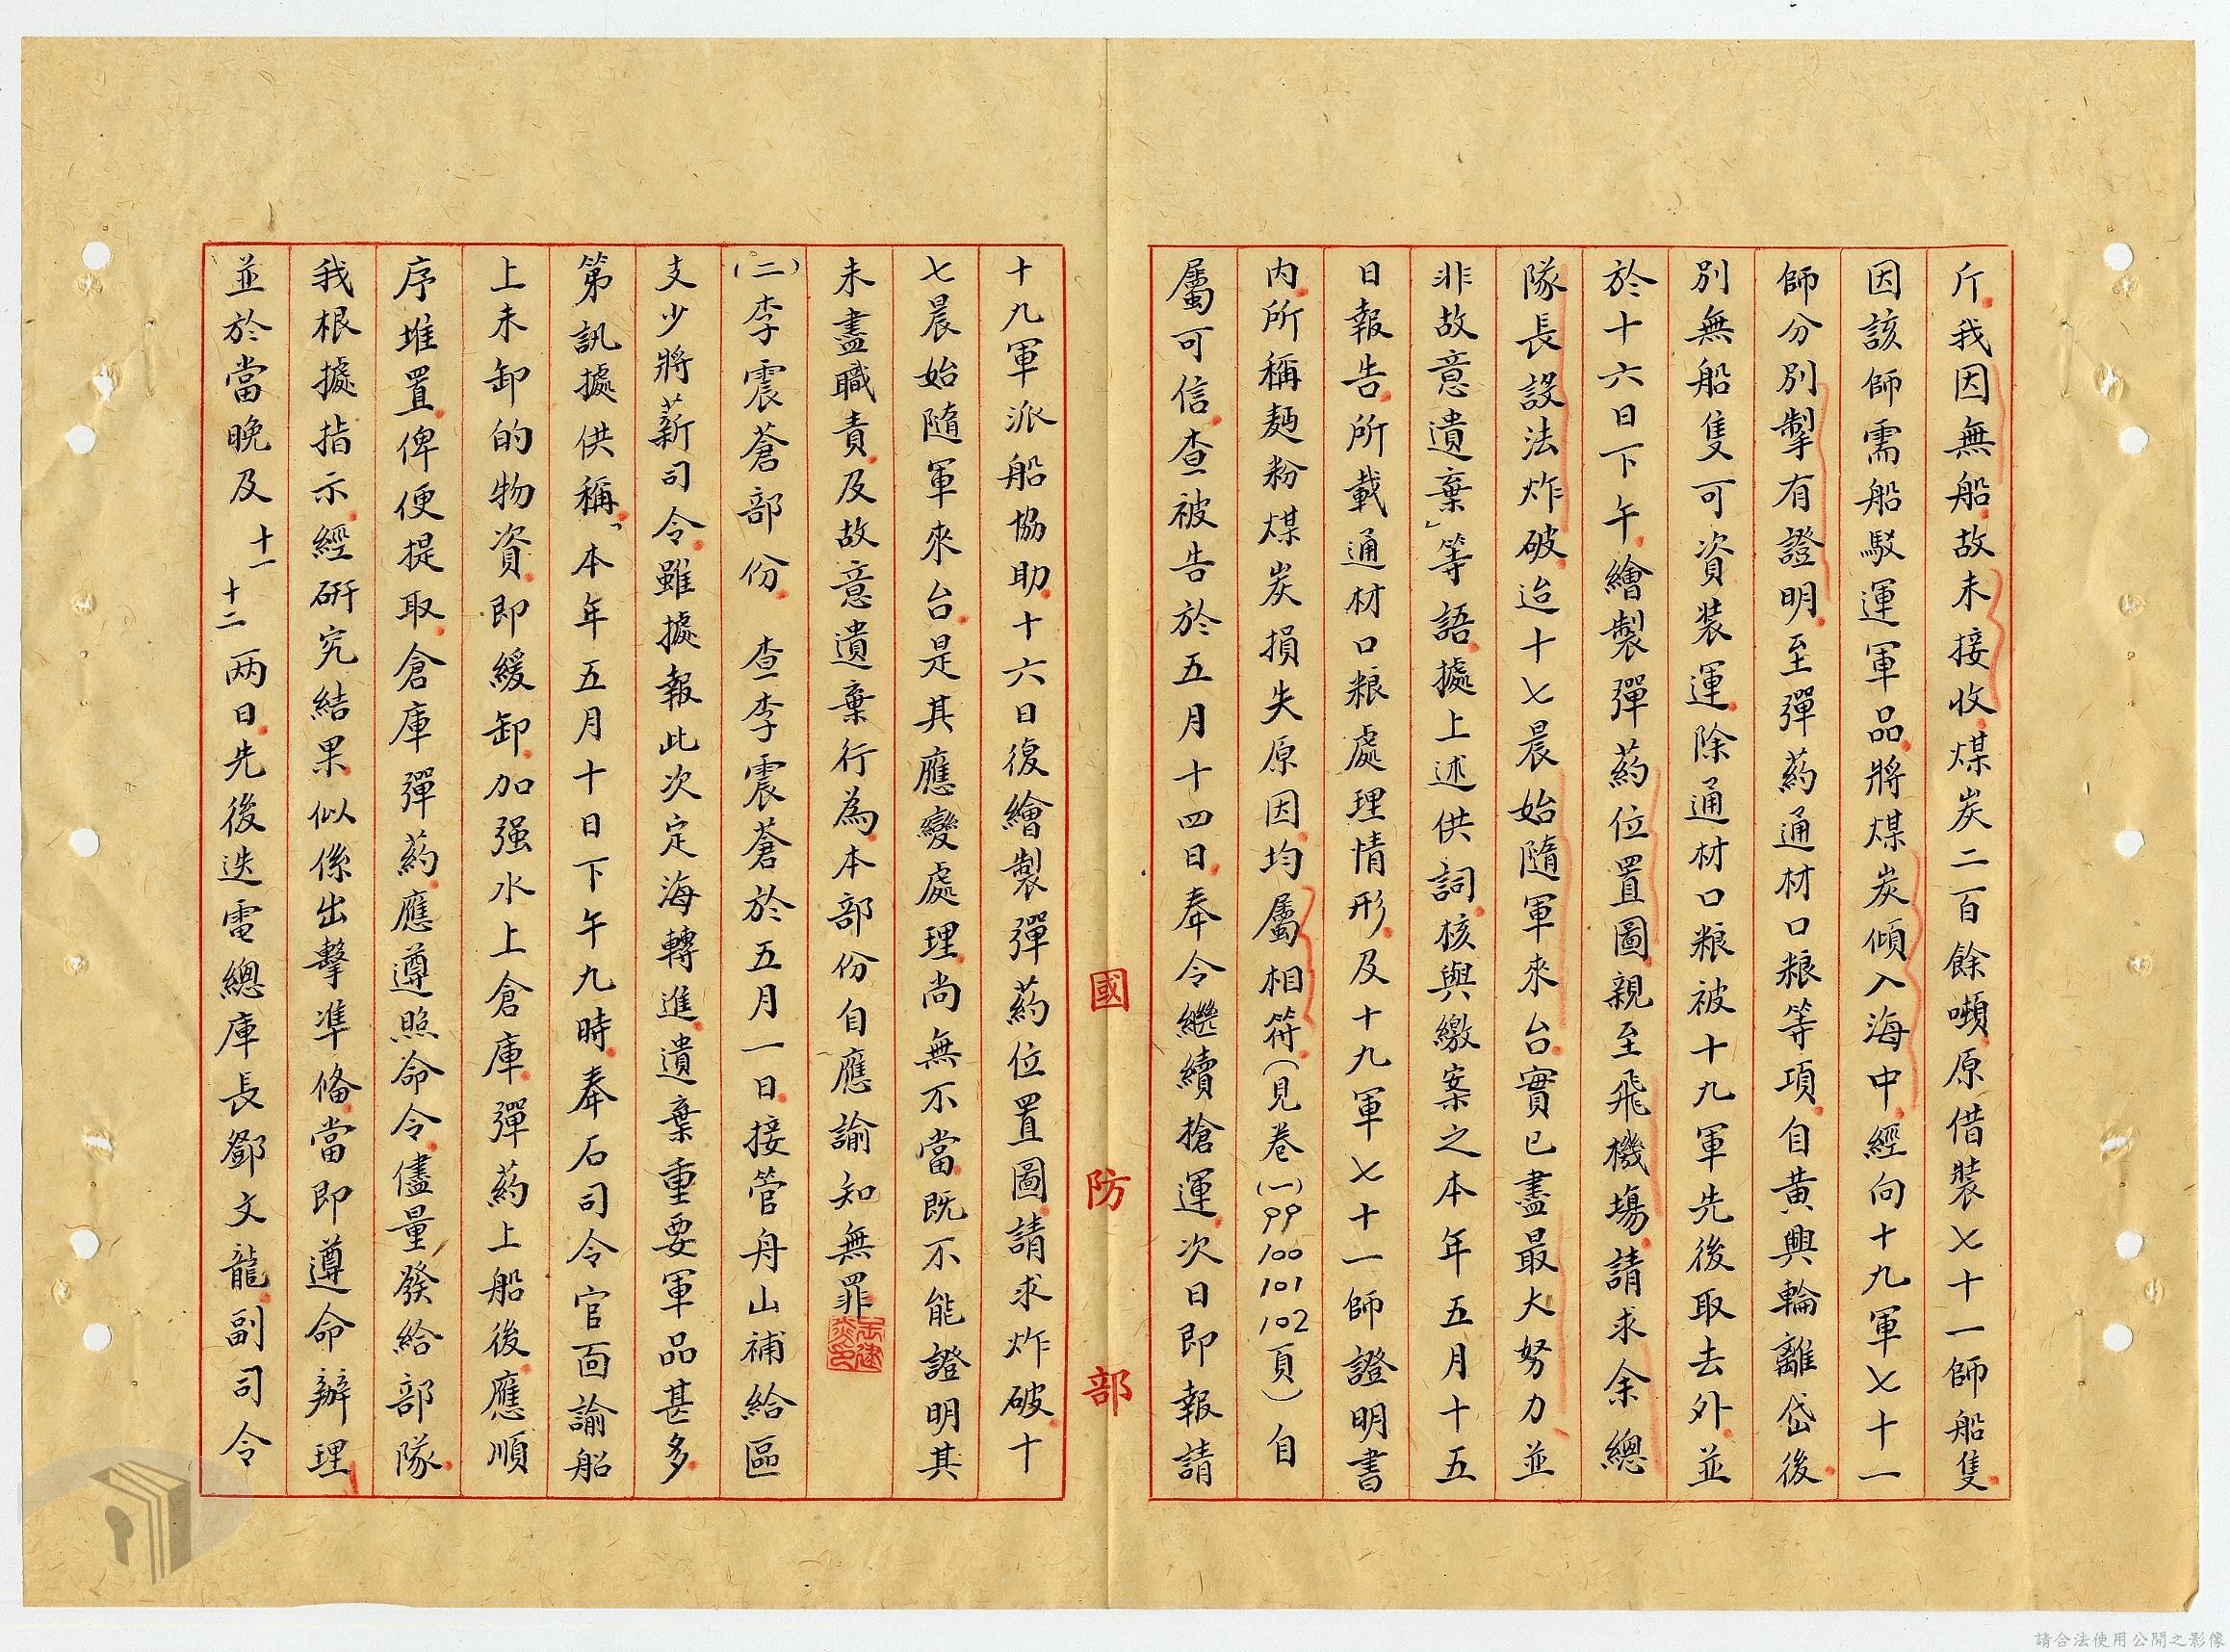 斤。我因無船。故未接收。煤炭二百餘噸原借裝七十一師船隻。
因該師需船駁運軍品。將煤炭傾入海中。經向十九軍七十一
師分別掣有證明。至彈葯通材口粮等項。自黃興輪離岱後。
別無船隻可資裝運。除通材口粮被十九軍先後取去外。並
於十六日下午。繪製彈葯位置圖。親至飛機場。請求余總
隊長設法炸破。迨十七晨始隨軍來台。實已盡最大努力、並
非故意遺棄」等語。據上述供詞。核與繳案之本年五月十五
日報告。所載通材口粮處理情形。及十九軍七十一師證明書
內。所稱麵粉煤炭損失原因。均屬相符。(見卷(一)99 100 101 102頁)自
屬可信。查被告於五月十四日。奉令繼續搶運。次日即報請
國防部
十九軍派船協助。十六日復繪製彈葯位置圖。請求炸破。十
七晨始隨軍來台。是其應變處理。尚無不當。既不能證明其
未盡職責。及故意遺棄行為。本部份自應諭知無罪。
(二)李震蒼部份。 查李震蒼於五月一日。接管舟山補給區
支少將薪司令。雖據報此次定海轉進。遺棄重要軍品甚多。
第訊據供稱。「本年五月十日下午九時。奉石司令官面諭船
上未卸的物資。即緩卸。加强水上倉庫。彈葯上船後。應順
序堆置。俾便提取。倉庫彈葯。應遵照命令。儘量發給部隊。
我根據指示。經研究結果。似係出擊準俻。當即遵命辦理
並於當晚及十一十二兩日。先後迭電總庫長鄧文龍。副司令
請合法使用公開之影像